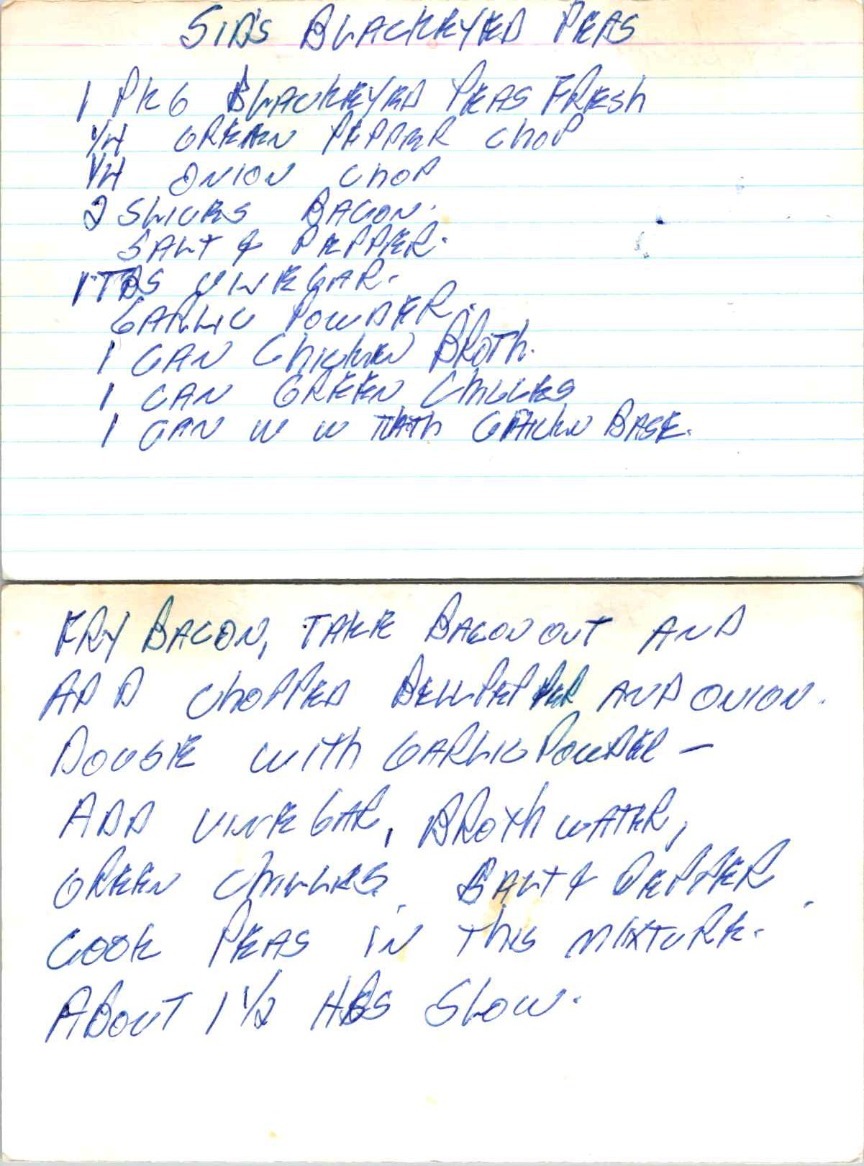 SID'S BLACKEYED PEAS
1 PKG BLACKEYED PEAS FRESH
1/4 GREEN PEPPER CHOP
1/4 ONION CHOP
2 SLICES BACON.
SALT & PEPPER.
1 TBS VINEGAR.
GARLIC POWDER.
1 CAN CHICKEN BROTH.
1 CAN GREEN CHILLES
1 CAN W BASE.
FRY BACON, TAKE BACON OUT AND
ADD CHOPPED BELLPEPPER AND ONION.
DOUSE WITH GARLIC POWDER –
ADD VINEGAR, BROTH WATER,
GREEN CHILLES, SALT & PEPPER.
COOK PEAS IN THIS MIXTURE.
ABOUT 1 1/2 HRS SLOW.